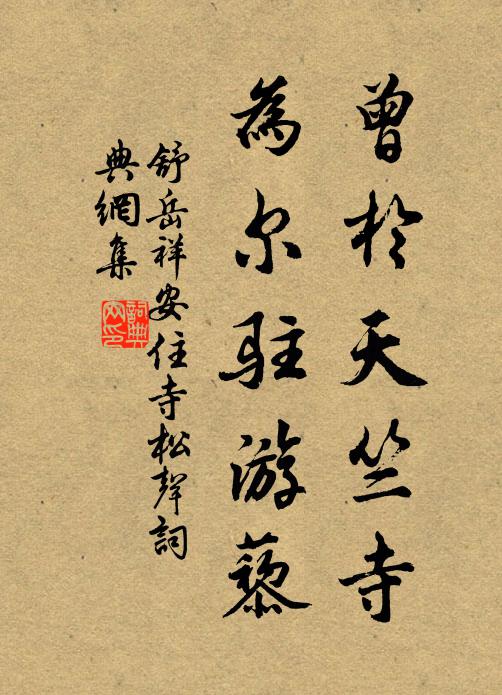 曾於天竺寺
為尔駐游藜
舒岳祥安住寺松聲詞
典網集
詞典
网印